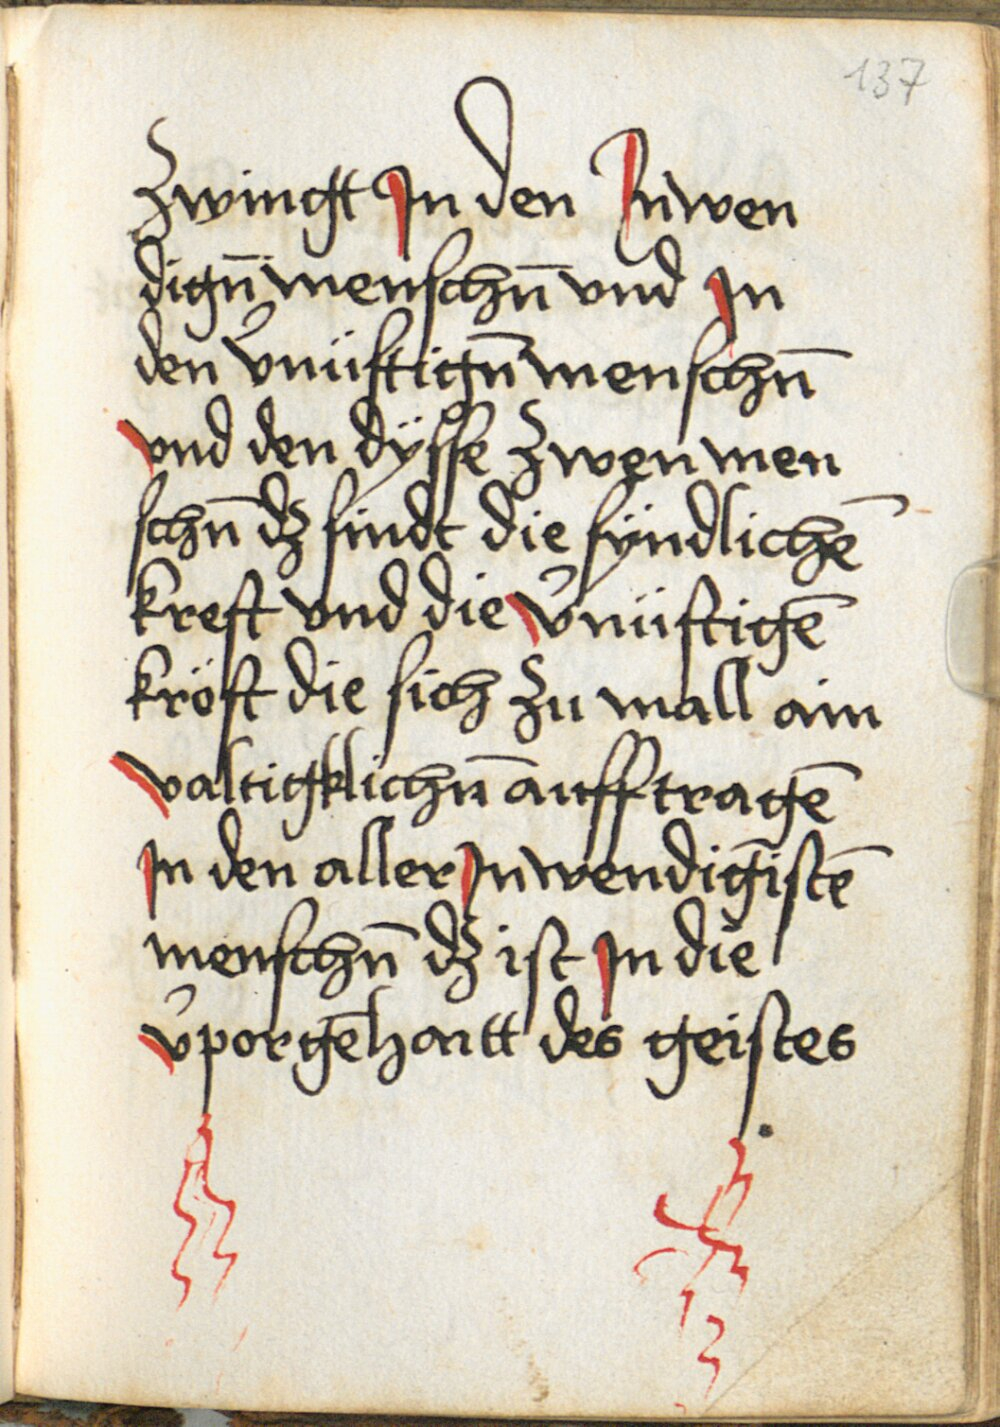 137
Zwingt In den Inwen
dign̄ menschn̄ vnd In
den v̉nüftign̄ menschn̄
vnd den dÿsse zwen men
schn̄ dz sindt die sÿndlichē
kreft vnd die v̉nüftigē
kröft die sich zu mall ain
valtigklichn̄ aufftragē
In den aller Inwendigistē
menschn̄ dz ist In die
v̉porgēhaitt des geistes